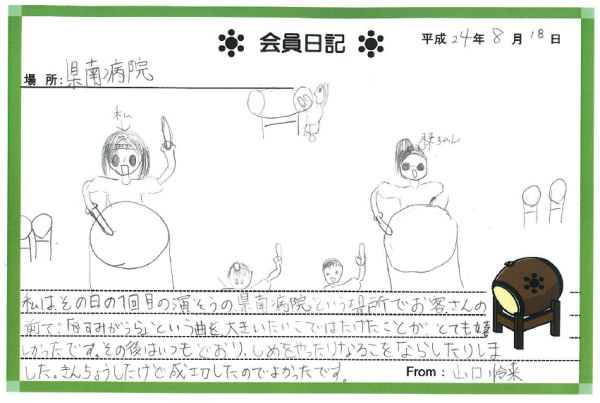 会員日記
平成24年8月18日
場所:県南病院
私
琴ちゃん
私はその日の1回目の演そうの県南病院という場所でお客さんの
前で、「かすみがうら」という曲を大きいたいこではたけたことが、とても嬉
しかったです。その後はいつもどおり、しめをやったりなるこをならしたりしま
した。きんちょうしたけど成功したのでよかったです。
From: 山口